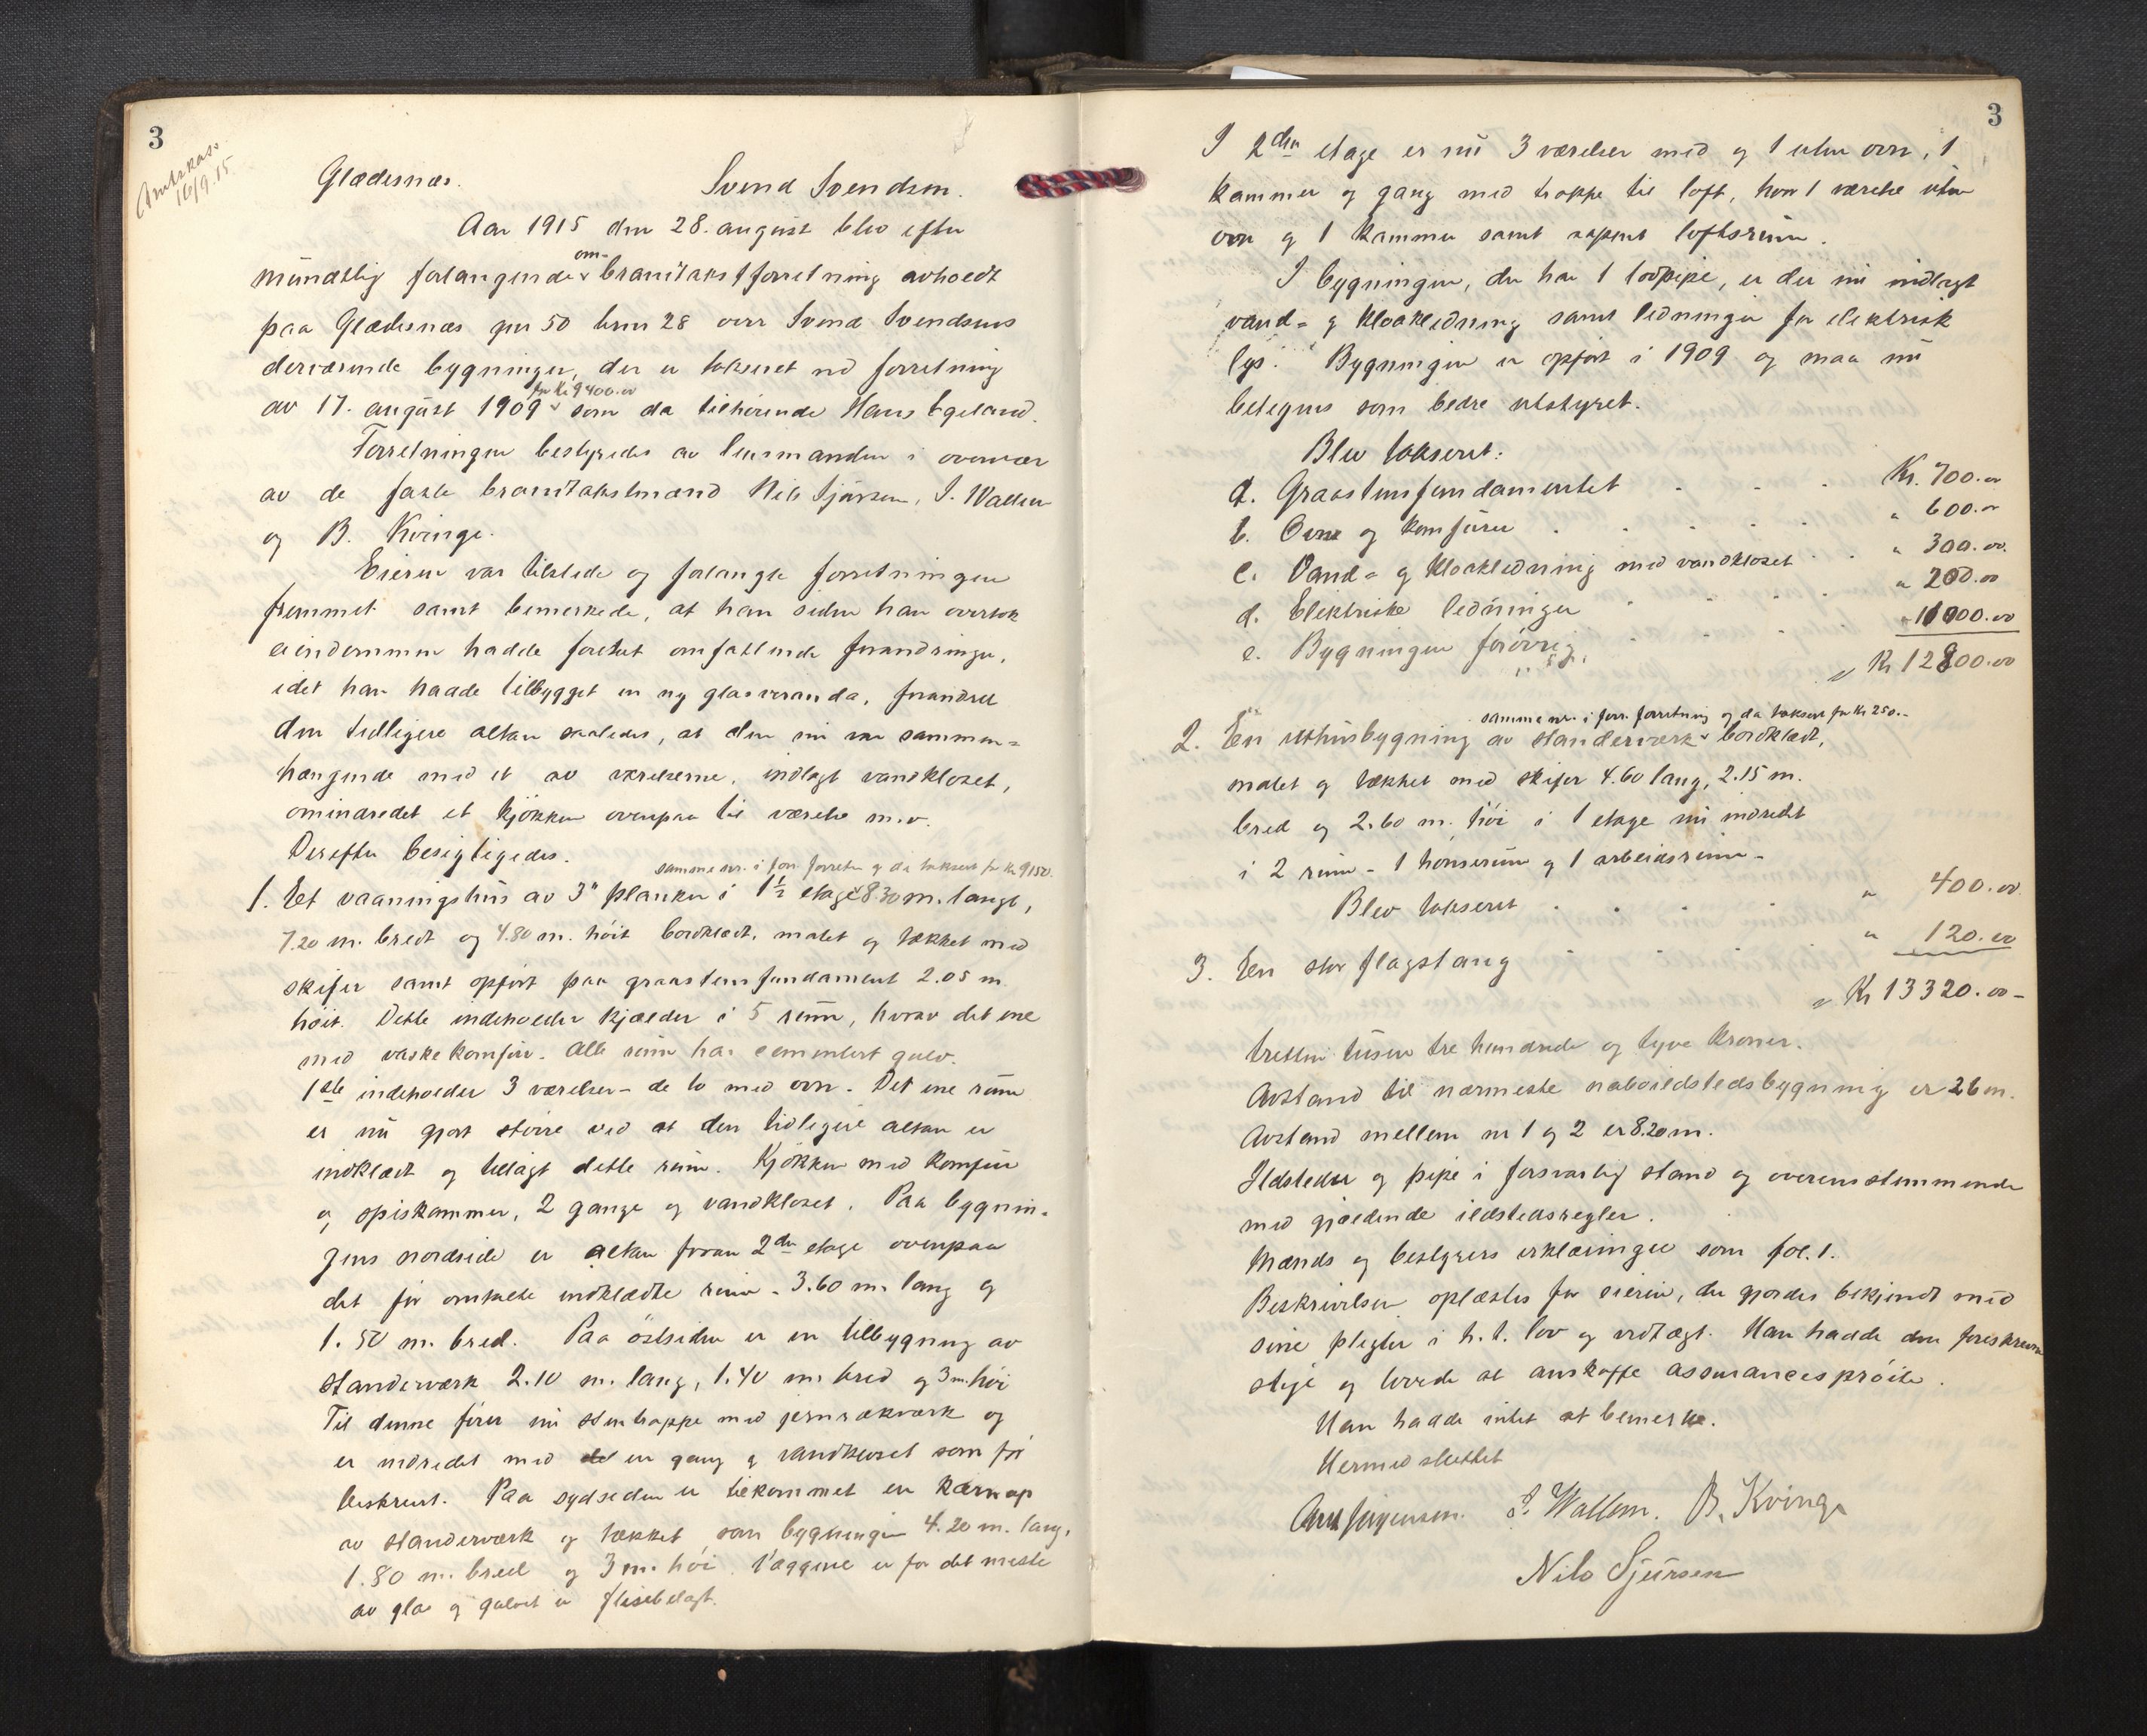 3
Amtskass.
16/9.15.
Glædesnæs. Svend Svendsen.
Aar 1915 den 28. august blev efter
mundtlig forlangende om- brandtakstforretning avholdt
paa Glædesnæs gnr 50 brnr 28 over Svend Svendsens
derværende bygninger, der er takseret ved forretning
av 17. august 1909 for kr 9400.00 som da tilhörende Hans Egeland.
Forretningen bestyredes av lensmanden i overvær
av de faste brandtakstmænd Nils Sjursen, I. Wallem
og B. Kvinge.
Eieren var tilstede og forlangte forretningen
fremmet samt bemerkede, at han siden han overtok
eiendommen hadde foretat omfattende forandringer,
idet han hadde tilbygget en ny glasveranda, forandret
den tidligere altan saaledes, at den nu var sammen-
hængende med et av værelserne, indlagt vandkloset,
omindredet et kjökken ovenpaa til værelse m.v.
Derefter besigtigedes.
samme nr. i forr. forretn og da takseret for kr 9150.
1. Et vaaningshus av 3" planker i 1½ etage 8.30 m. langt,
7.20 m. bredt og 4.80 m. höit bordklædt, malet og tækket med
skifer samt opfört paa graastensfundament 2.05 m.
höit. Dette indeholder kjælder i 5 rum, hvorav det ene
med vaskekomfur. Alle rum har cementert gulv.
1ste indeholder 3 værelser - de to med ovn. Det ene rum
er nu gjort större ved at den tidligere altan er
indklædt og tillagt dette rum. Kjökken med komfur
og spiskammer, 2 gange og vandkloset. Paa bygnin-
gens nordside er altan foran 2den etage ovenpaa
det för omtalte indklædte rum - 3.60 m. lang og
1.50 m. bred. Paa östsiden er en tilbygning av
standerværk 2.10 m. lang, 1.40 m. bred og 3 m. höi
Til denne förer nu stentrappe med jernrækværk og
er indredet med en gang og vandkloset som för
beskrevet. Paa sydsiden er tilkommet en karnap
av standerværk og tækket som bygningen 4.20 m. lang,
1.80 m. bred og 3 m. höi. Væggene er for det meste
av glas og gulvet er flisebelagt.
3
I 2den etage er nu 3 værelser med og 1 uten ovn, 1
kammer og gang med trappe til loft, hvor 1 værelse uten
ovn og 1 kammer samt aapent loftsrum.
I bygningen, der har 1 lodpipe, er der nu indlagt
vand- og kloakledning samt ledninger for elektrisk
lys. Bygningen er opfört i 1909 og maa nu
betegnes som bedre utstyret.
Blev takseret:
a. Graastensfundamentet . . . Kr. 700.00
b. Ovne og komfurer . . . . " 600.00
c. Vand- og kloakledning med vandkloset . . " 300.00.
d. Elektriske ledninger . . . " 200.00
e. Bygningen forövrig . . . " 11000.00
Kr 12800.00
samme nr. i forr. forretning og da takseret for kr 250.-
2. En uthusbygning av standerværk bordklædt,
malet og tækket med skifer 4.60 lang, 2.15 m.
bred og 2.60 m. höi i 1 etage nu indredet
i 2 rum - 1 hönserum og 1 arbeidsrum -
Blev takseret . . . . " 400.00.
3. En stor flagstang . . . . " 120.00
Kr 13320.00 -
tretten tusen tre hundrede og tyve kroner.
Avstand til nærmeste naboildstedsbygning er 26 m.
Avstand mellem nr 1 og 2 er 8.20 m.
Ildsteder og pipe i forsvarlig stand og overensstemmende
med gjældende ildstedsregler.
Mænds og bestyrers erklæringer som fol. 1.
Beskrivelsen oplæstes for eieren, der gjordes bekjendt med
sine plegter i h. t. lov og vedtægt. Han hadde den foreskrevne
stige og lovede at anskaffe assurancespröite.
Han hadde intet at bemerke.
Hermed sluttet
Jörgensen. I. Wallem. B. Kvinge
Nils Sjursen